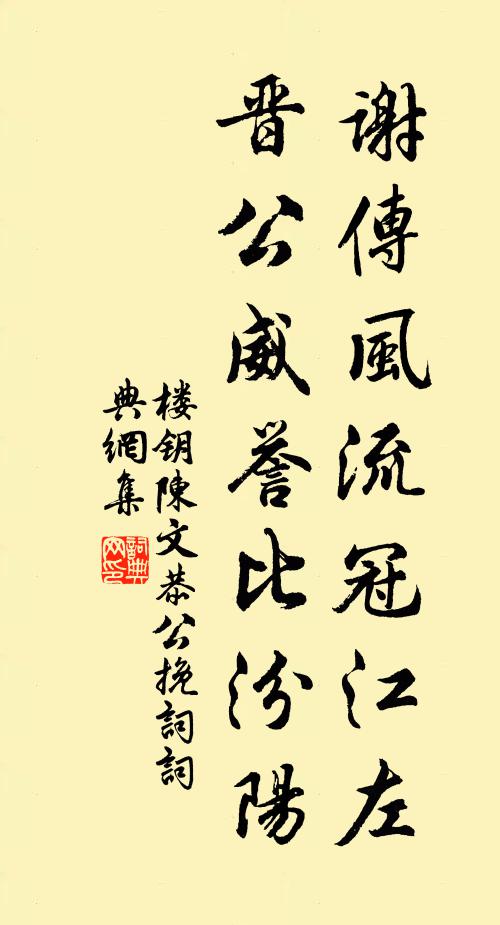 謝傅風流冠江左
晋公威誉比汾陽
楼钥陳文恭公挽詞詞
典網集
詞典
网印